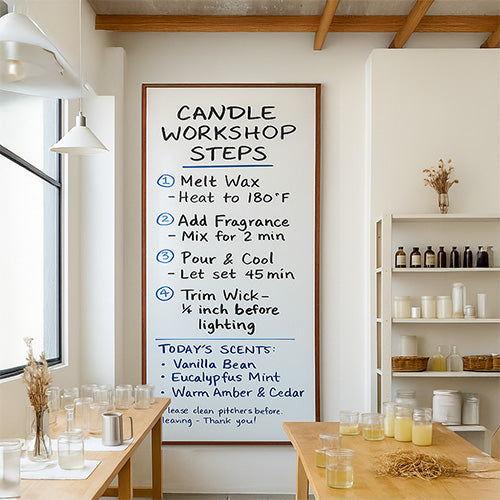 CANDLE
WORKSHOP
STEPS
① Melt Wax
- Heat to 180°F
② Add Fragrance
- Mix for 2 min
③ Pour & Cool
- Let set 45 min
④ Trim Wick-
¼ inch before
lighting
TODAY'S SCENTS:
• Vanilla Bean
• Eucalypfus Mint
• Warm Amber & Cedar
lease clean pitchers before.
leaving - Thank you!